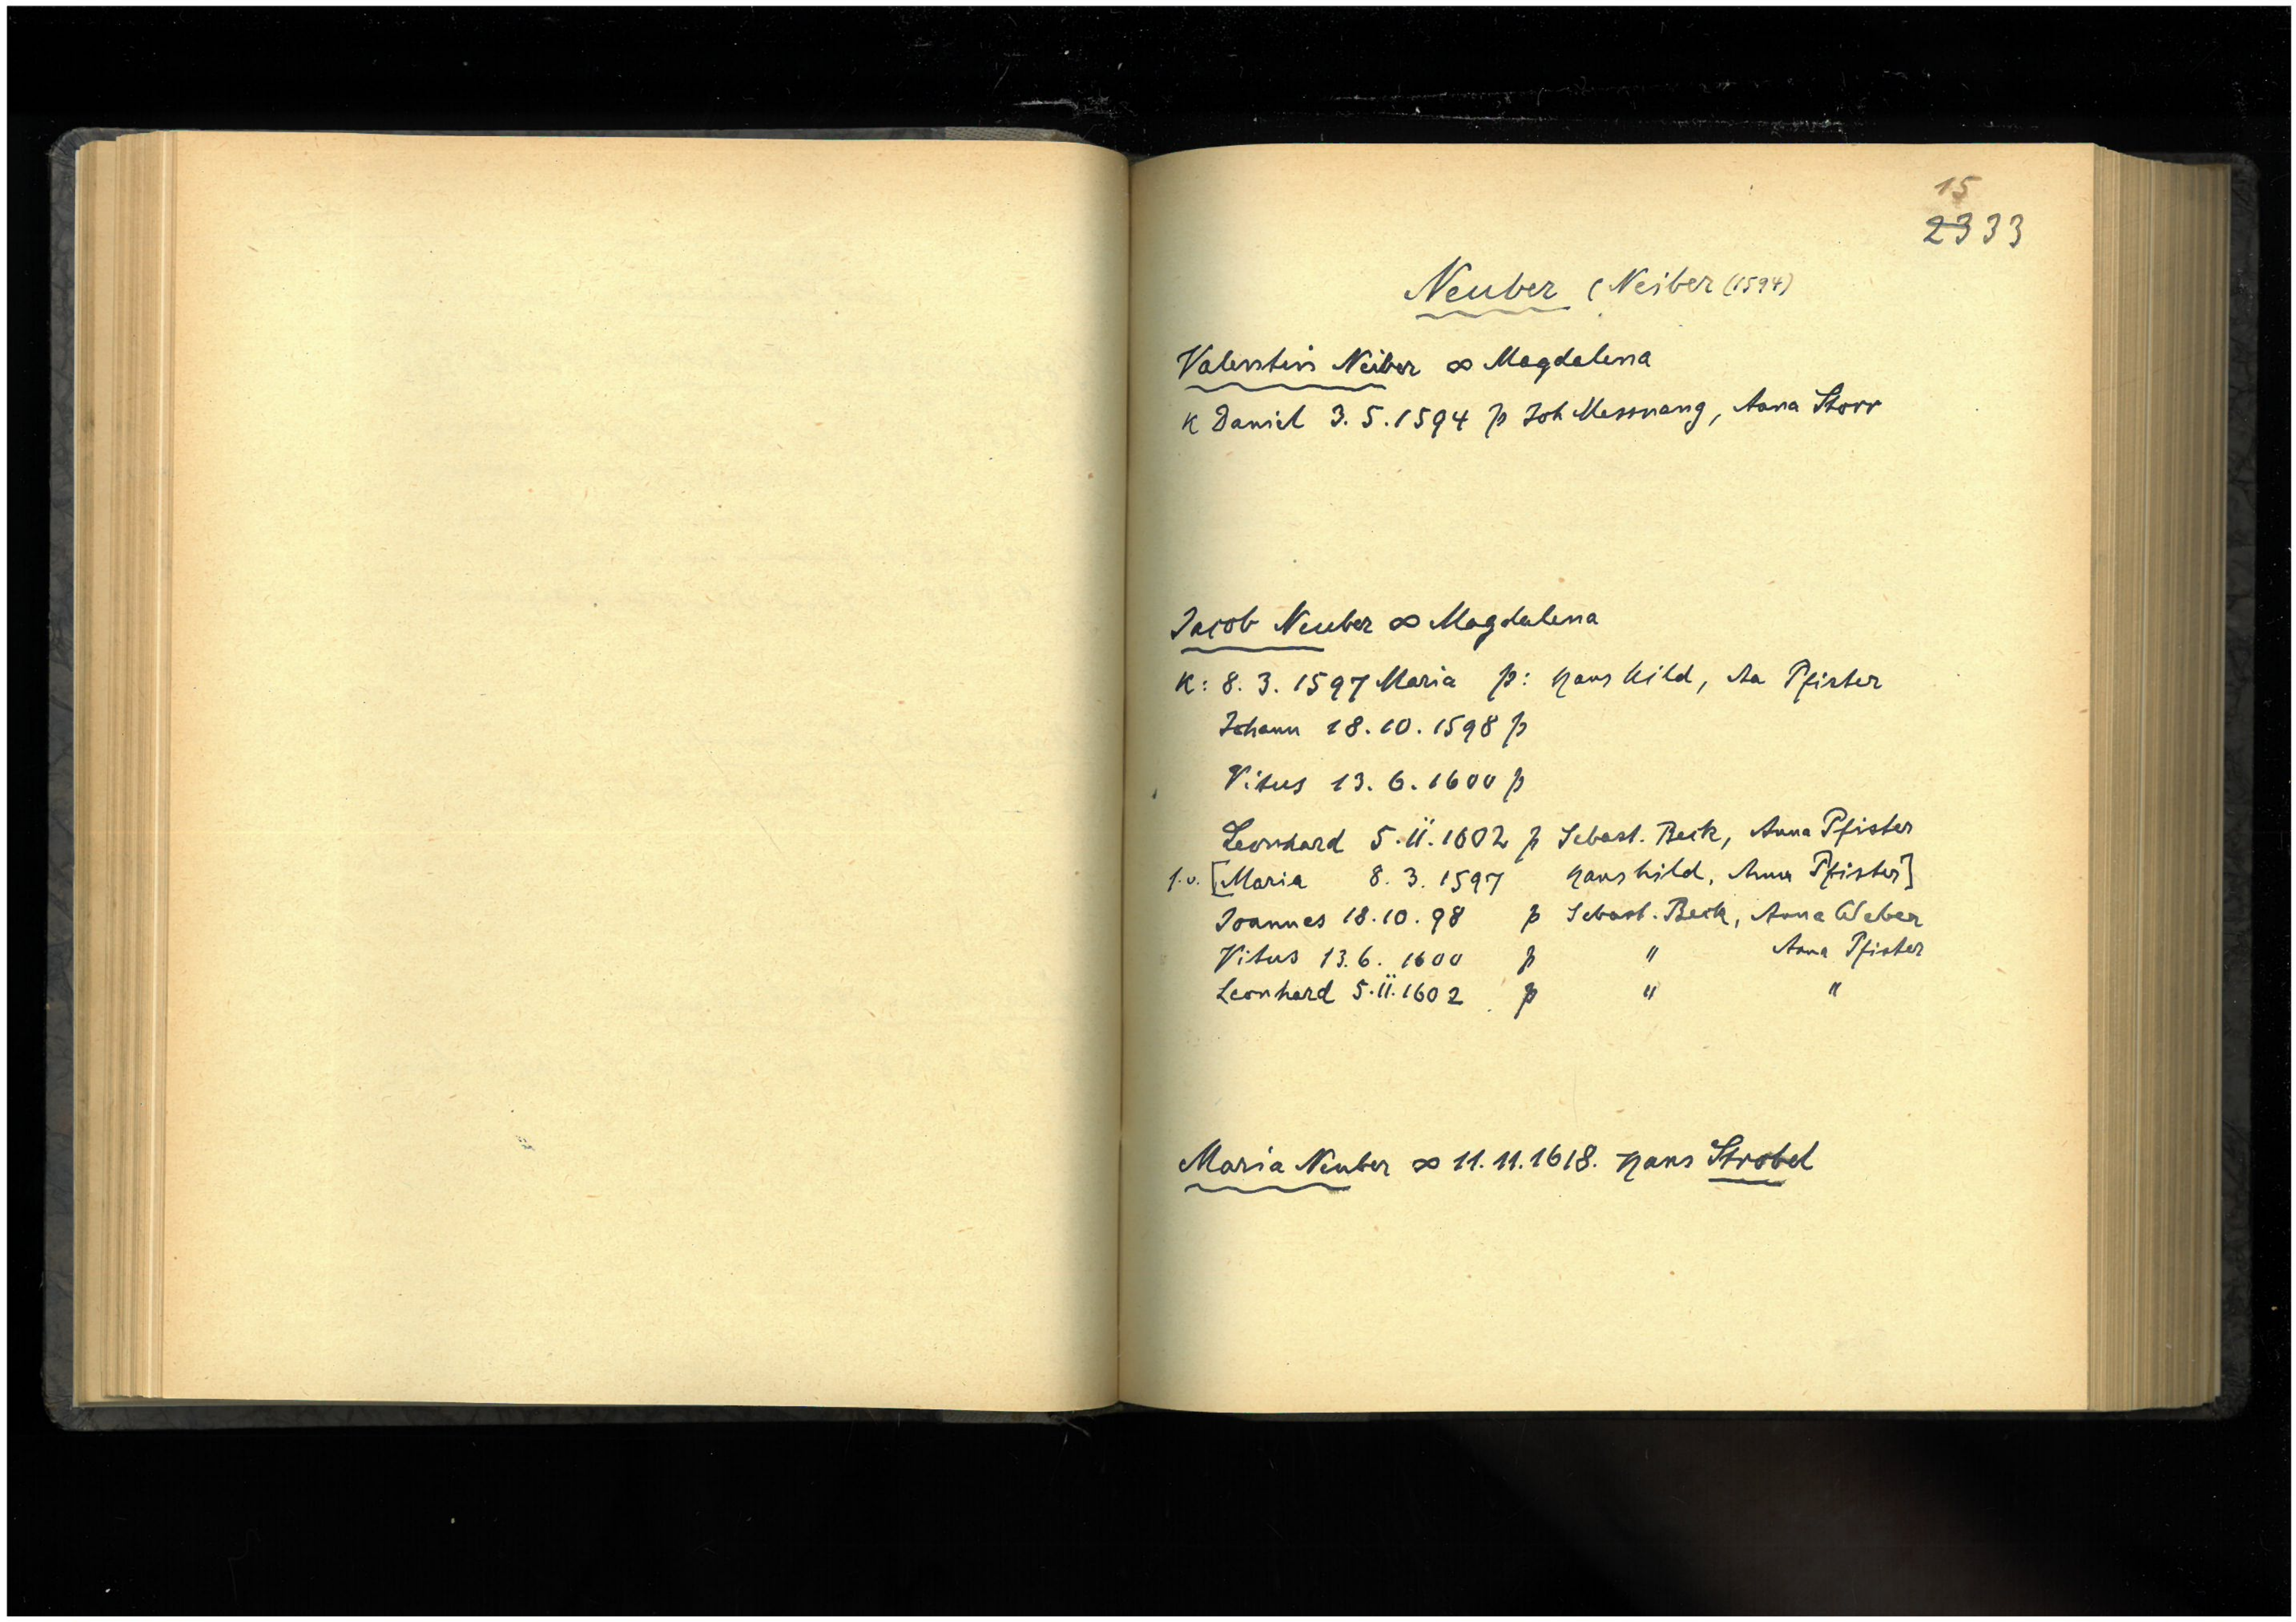 15
2333
Neuber (Neiber (1594)
Valentin Neiber ∞ Magdalena
K Daniel 3.5.1594 p Joh Messnang, Anna Storr
Jacob Neuber ∞ Magdalena
K: 8.3.1597 Maria p: Hans Hild, Aa Pfister
Johann 18.10.1598 p
Vitus 13.6.1600 p
Leonhard 5.11.1602 p Sebast. Beck, Anna Pfister
s.o. [Maria 8.3.1597 Hans Hild, Anna Pfister]
Joannes 18.10.98 p Sebast. Beck, Anna Weber
Vitus 13.6.1600 p " Anna Pfister
Leonhard 5.11.1602 p " "
Maria Neuber ∞ 11.11.1618. Hans Strobel